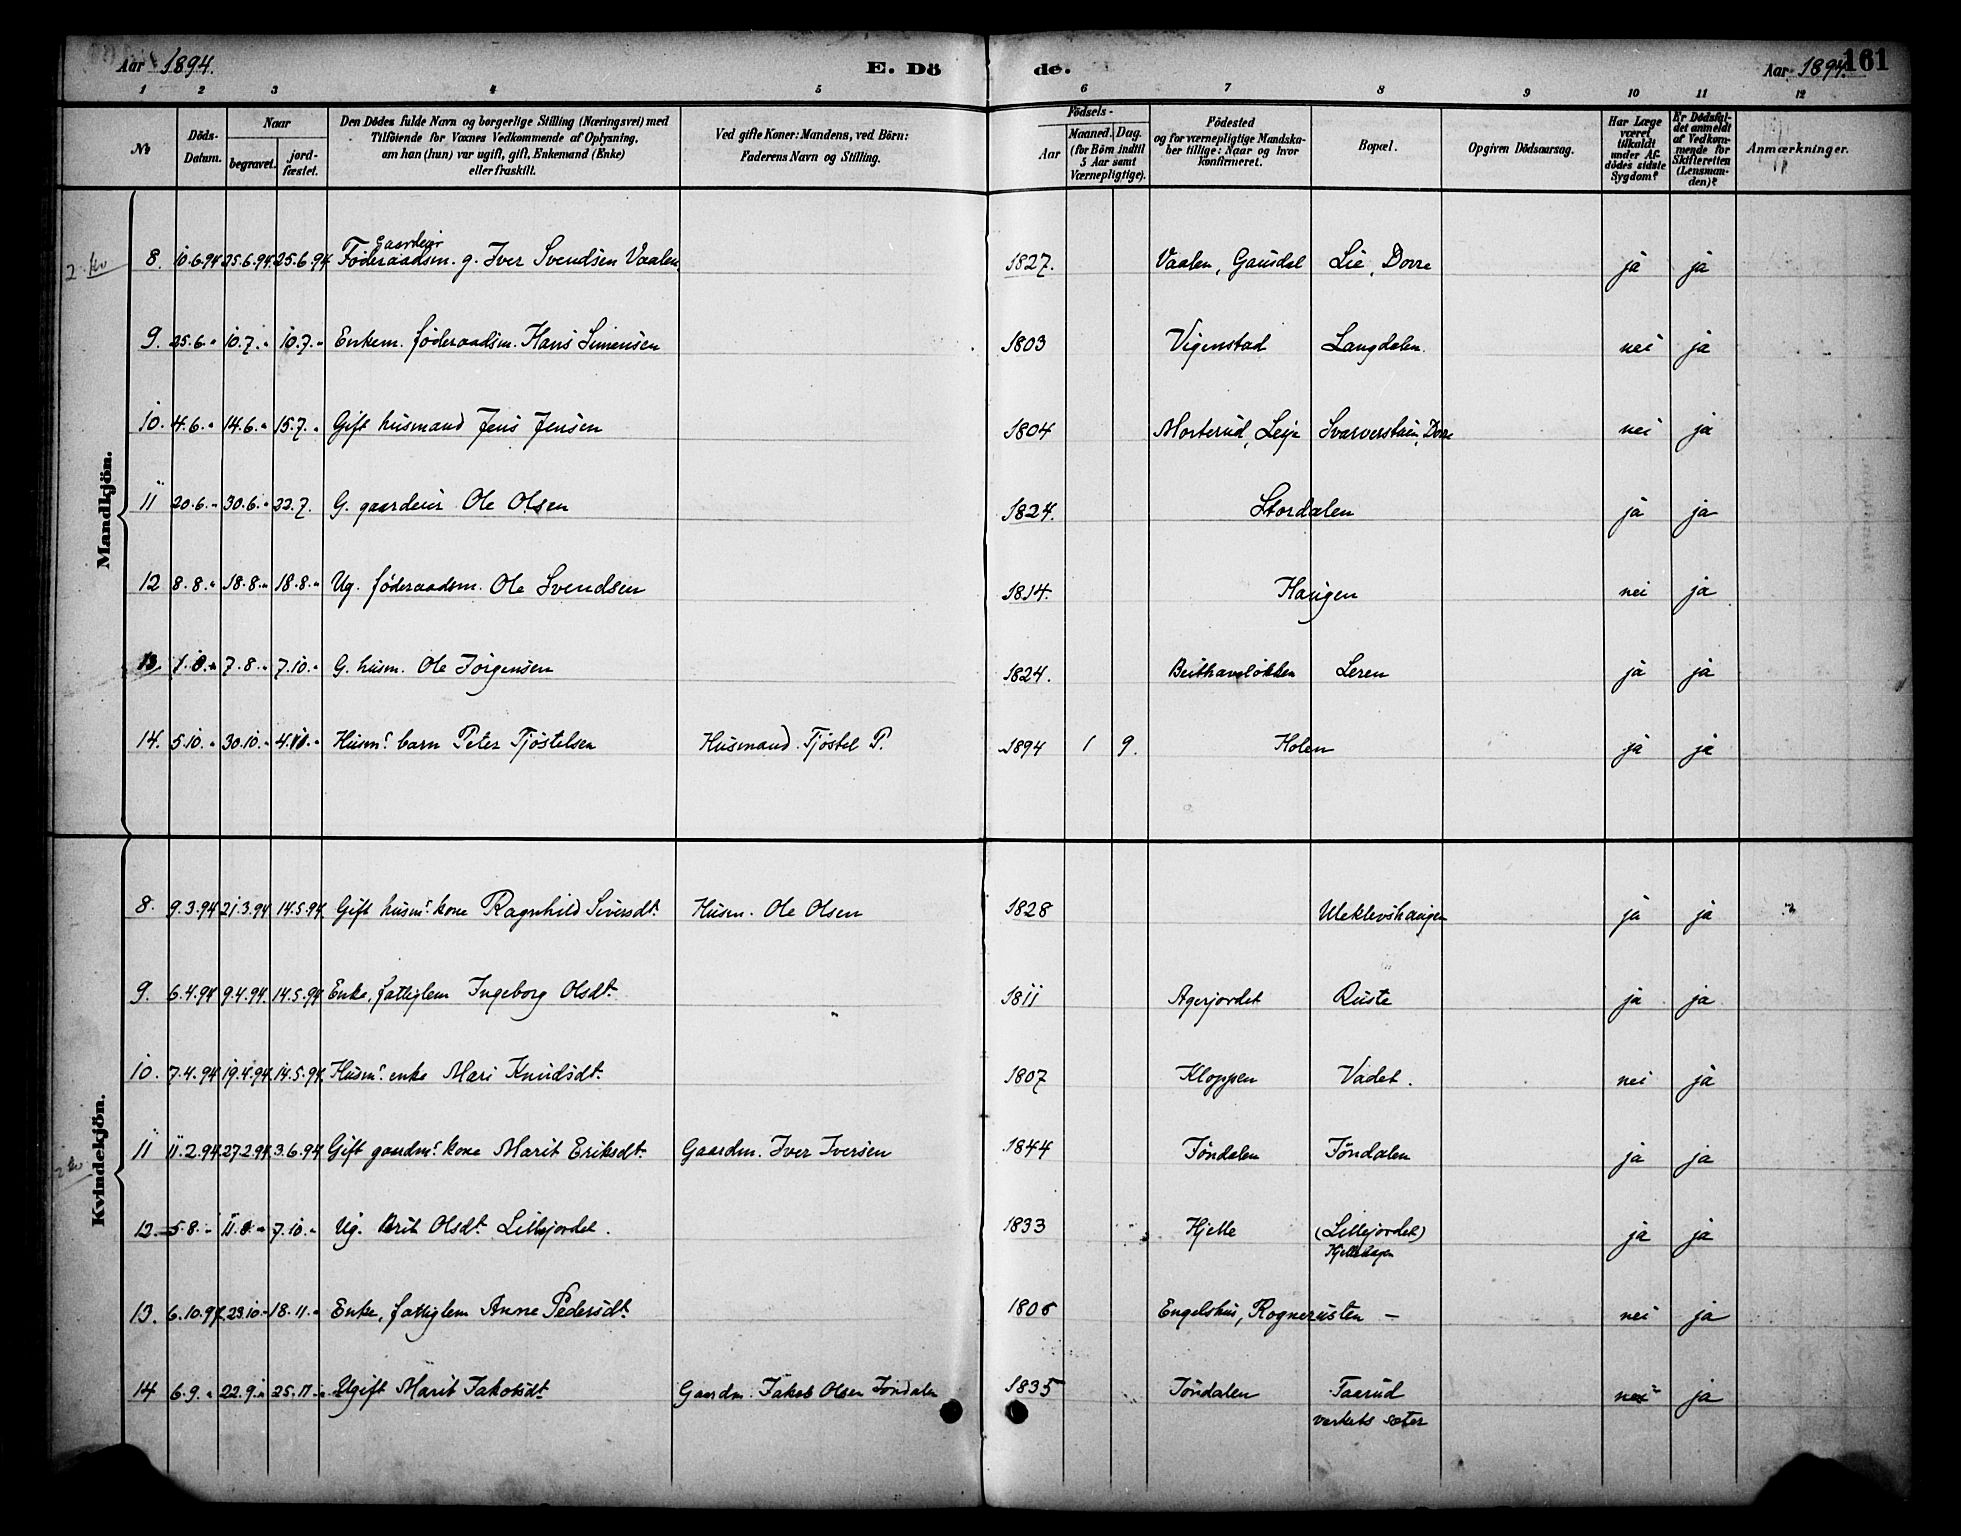 Aar 1894. E. Dö de. Aar 1894. 161
1 2 3 4 5 6 7 8 9 10 11 12
№ Döds-Datum. Naar begravet. jord-fæstet. Den Dödes fulde Navn og borgerlige Stilling (Næringsvei) med Tilföiende for Voxnes Vedkommende af Oplysning, om han (hun) var ugift, gift, Enkemand (Enke) eller fraskilt. Ved gifte Koner: Mandens, ved Börn: Faderens Navn og Stilling. Födsels- Aar Maaned. Dag. (for Börn indtil 5 Aar samt Værnepligtige). Födested og for værnepligtige Mandskaber tillige: Naar og hvor konfirmeret. Bopæl. Opgiven Dödsaarsag. Har Læge været tilkaldt under Afdödes sidste Sygdom? Er Dödsfaldet anmeldt af Vedkommende for Skifteretten (Lensmanden)? Anmærkninger.
Mandkjön.
Gaardeier
8. 10.6.94 25.6.94 25.6.94 Föderaadsm. g. Iver Svendsen Vaalen 1827. Vaalen, Gausdal Lie, Dovre ja ja
9. 25.6.„ 10.7.„ 10.7.„ Enkem. föderaadsm. Hans Simensen 1803 Vigenstad Langdalen. nei ja
10. 4.6.„ 14.6.„ 15.7.„ Gift husmand Jens Jensen 1804 Morterud, Leije Svarverstuen, Dovre nei ja
11 20.6.„ 30.6.„ 22.7. G. gaardeier Ole Olsen 1824. Stordalen ja ja
12 8.8.„ 18.8.„ 18.8.„ Ug. föderaadsm. Ole Svendsen 1814. Haugen nei ja
13. 7.8.„ 7.10.„ G. husm. Ole Jörgensen 1824. Leren ja ja
14. 5.10.„ 30.10.„ Husms barn Peter Tjöstelsen Husmand Tjöstel P. 1894 1 9. Holen ja ja
Kvindekjön.
8. 9.3.94 21.3.94 14.5.94 Gift husms kone Ragnhild Siversdt. Husm. Ole Olsen 1828 Uleklevshaugen ja ja
9. 6.4.94 9.4.94 14.5.94 Enke, fattiglem Ingeborg Olsdt. 1811 Agerjordet Ruste ja ja
10. 7.4.94 19.4.94 14.5.94 Husms enke Mari Knudsdt. 1807 Kloppen Vadet. nei ja
11 11.2.94 27.2.94 3.6.94 Gift gaardms kone Marit Eriksdt. Gaardm. Iver Iversen 1844 Jöndalen Jöndalen ja ja
12. 5.8.„ 11.8.„ 7.10.„ Ug. Brit Olsdt. Lillejordet. 1833 Hjelle (Lillejordet) ja ja
Hjellehagen
13. 6.10.94 23.10.„ 18.11.„ Enke, fattiglem Anne Pedersdt. 1806 Engelshus, Rognerusten — nei ja
14 6.9.„ 22.9.„ 25.11.„ Ugift Marit Jakobsdt. Gaardm. Jakob Olsen Jöndalen 1835 Jöndalen Taarud nei ja
verkets sæter